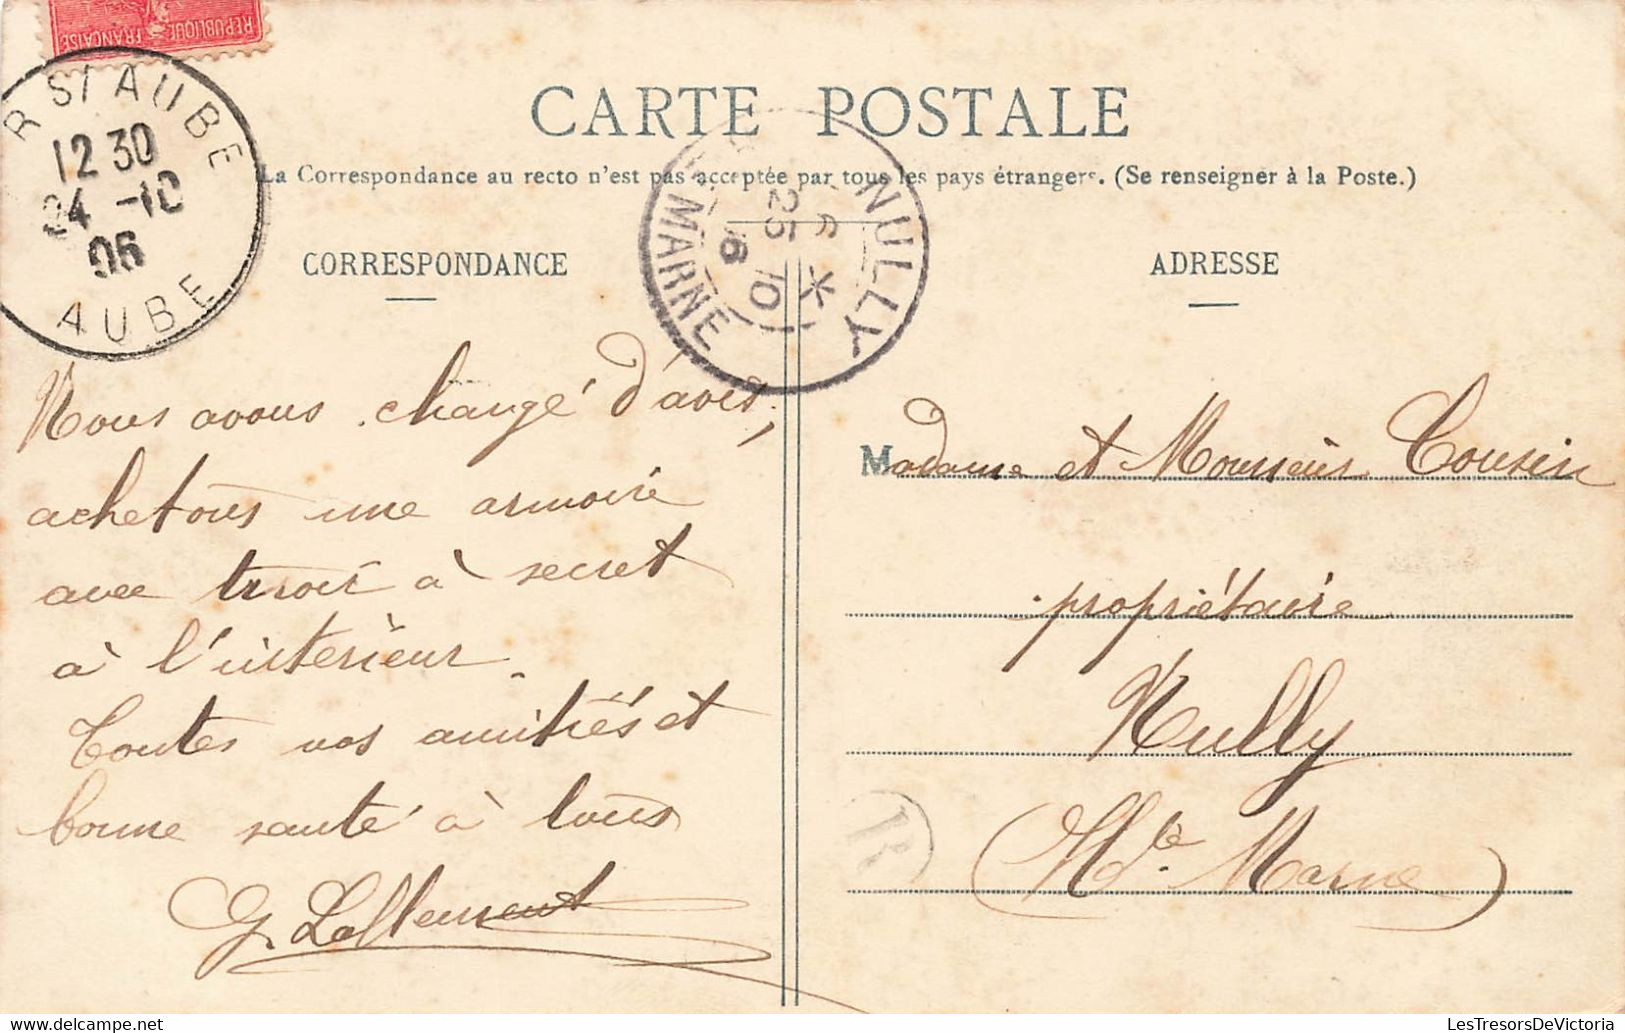 REPUBLIQUE FRANÇAISE
R S/ AUBE
12 30
24 -10
06
AUBE
CARTE POSTALE
La Correspondance au recto n'est pas acceptée par tous les pays étrangers. (Se renseigner à la Poste.)
NULLY
25 10
MARNE
CORRESPONDANCE
Nous avons changé d'avis,
achetons une armoire
avec tiroir à secret
à l'intérieur.
Toutes nos amitiés et
bonne santé à tous
G. Lallement
ADRESSE
Madame et Monsieur Cousin
propriétaire
Nully
(Hte Marne)
R
LesTresorsDeVictoria